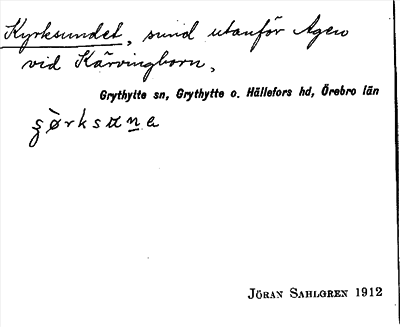 Kyrksundet, sund utanför Agen
vid Kärvingborn,
Grythytte sn, Grythytte o. Hällefors hd, Örebro län
Jöran Sahlgren 1912